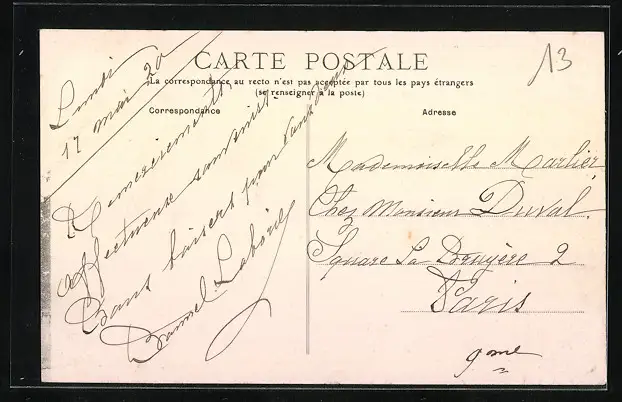 CARTE POSTALE
La correspondance au recto n'est pas acceptée par tous les pays étrangers
(se renseigner à la poste)
Correspondance
Adresse
13
Lundi
17 mai 20
Remerciements
affectueux souvenir
Bons baisers pour vous deux
Daniel Laborie
Mademoiselle Marlier
Chez Monsieur Duval.
Square La Bruyère 2
Paris
9eme